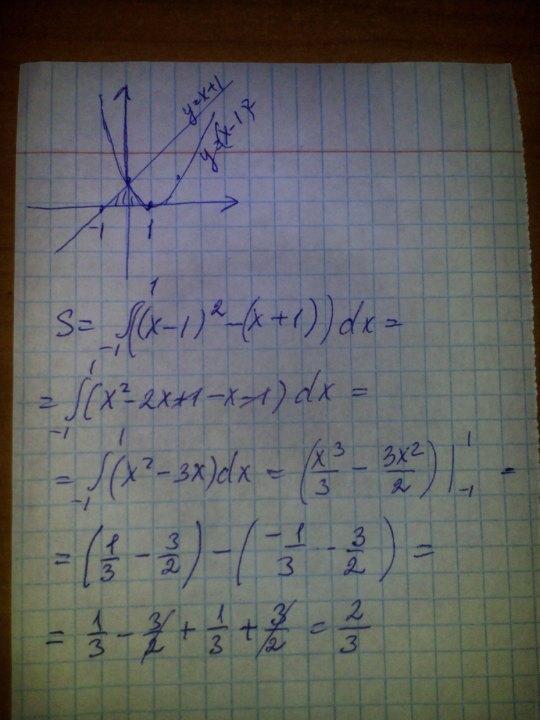 y=x+1
y=(x-1)²
-1 1
S= ∫₋₁¹((x-1)²-(x+1))dx=
= ∫₋₁¹(x²-2x+1-x-1)dx =
= ∫₋₁¹(x²-3x)dx = (x³/3 - 3x²/2)|₋₁¹ =
= (1/3 - 3/2) - (-1/3 - 3/2) =
= 1/3 - 3/2 + 1/3 + 3/2 = 2/3